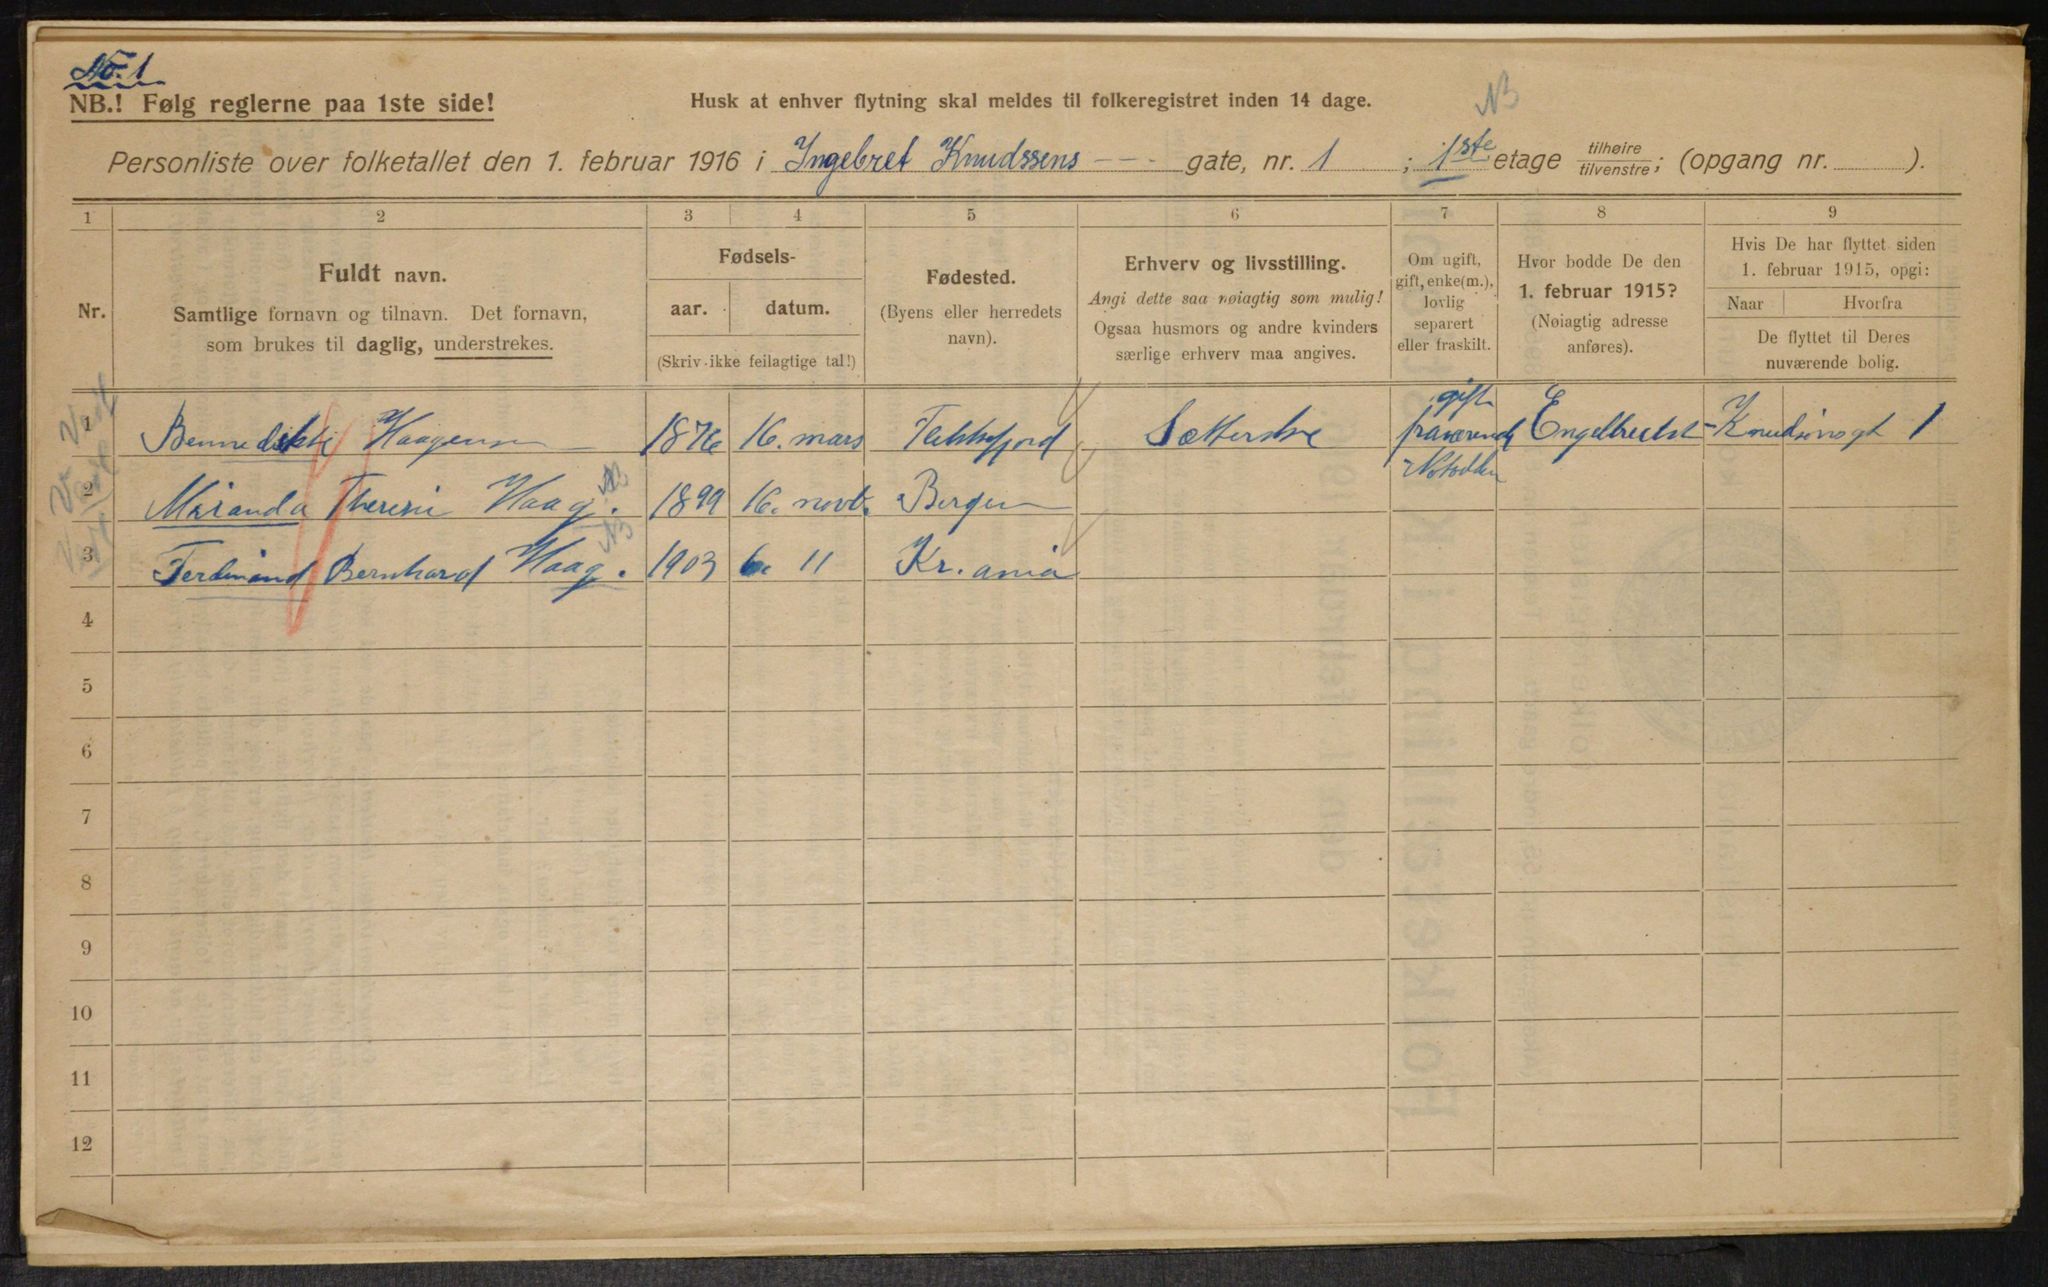 No. 1
NB.! Følg reglerne paa 1ste side!
Husk at enhver flytning skal meldes til folkeregistret inden 14 dage.
NB
Personliste over folketallet den 1. februar 1916 i Ingebret Knudssens - - - gate, nr. 1 ; 1ste etage tilhøire/tilvenstre; (opgang nr. ).
1 2 3 4 5 6 7 8 9
Nr.
Fuldt navn.
Samtlige fornavn og tilnavn. Det fornavn,
som brukes til daglig, understrekes.
Fødsels-
aar. datum.
(Skriv ikke feilagtige tal!)
Fødested.
(Byens eller herredets
navn).
Erhverv og livsstilling.
Angi dette saa nøiagtig som mulig!
Ogsaa husmors og andre kvinders
særlige erhverv maa angives.
Om ugift,
gift, enke(m.),
lovlig
separert
eller fraskilt.
Hvor bodde De den
1. februar 1915?
(Nøiagtig adresse
anføres).
Hvis De har flyttet siden
1. februar 1915, opgi:
Naar Hvorfra
De flyttet til Deres
nuværende bolig.
gift
1 Haagensen 1876 16. mars fraværende 1
Notodden
2 Miranda Haag. 1899 16. novb. Bergen
3 Ferdinand Bernhard Haag. 1903 6. 11 Kr.ania
4
5
6
7
8
9
10
11
12